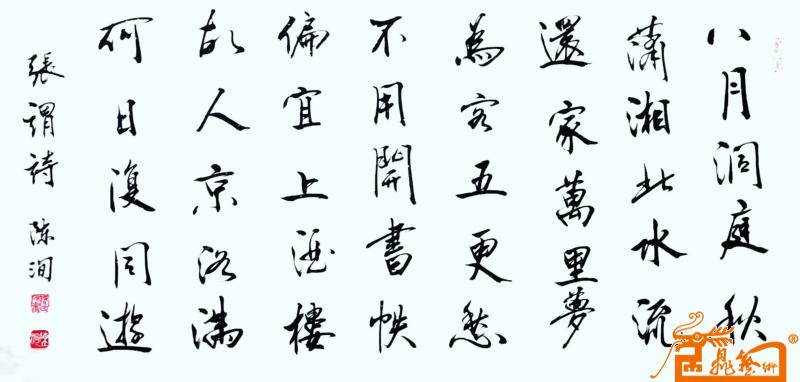 八月洞庭秋
瀟湘北水流
還家萬里夢
為客五更愁
不用開書帙
偏宜上酒樓
故人京洛滿
何日復同遊
張謂詩 陳洵